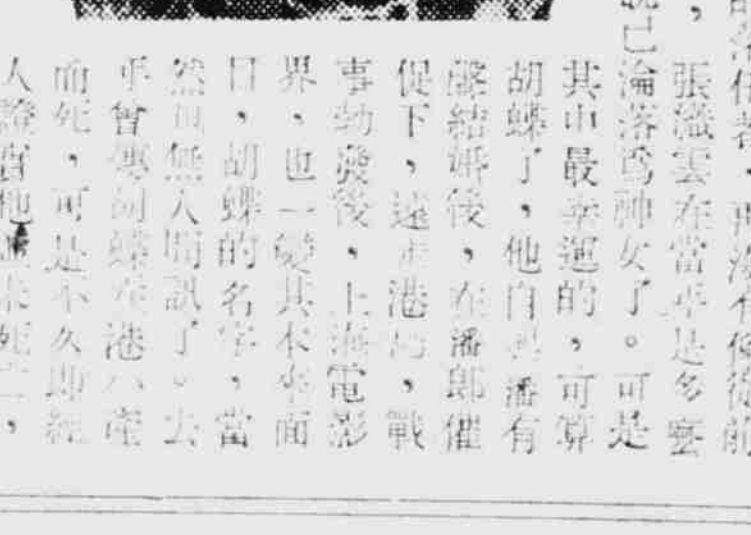 的落伍者，再沒个像從前
，張織雲在當年是多麼
說已淪落爲神女了。可是
其中最幸運的，可算
胡蝶了，他自與潘有
聲結婚後，在潘郎催
促下，遠走港，戰
事勃發後，上海電影
界，也一變其本來面
日，胡蝶的名字，當
然也無人問訊了。去
年曾傳胡蝶在港六產
而死，可是不久即經
人證實他並未死亡，